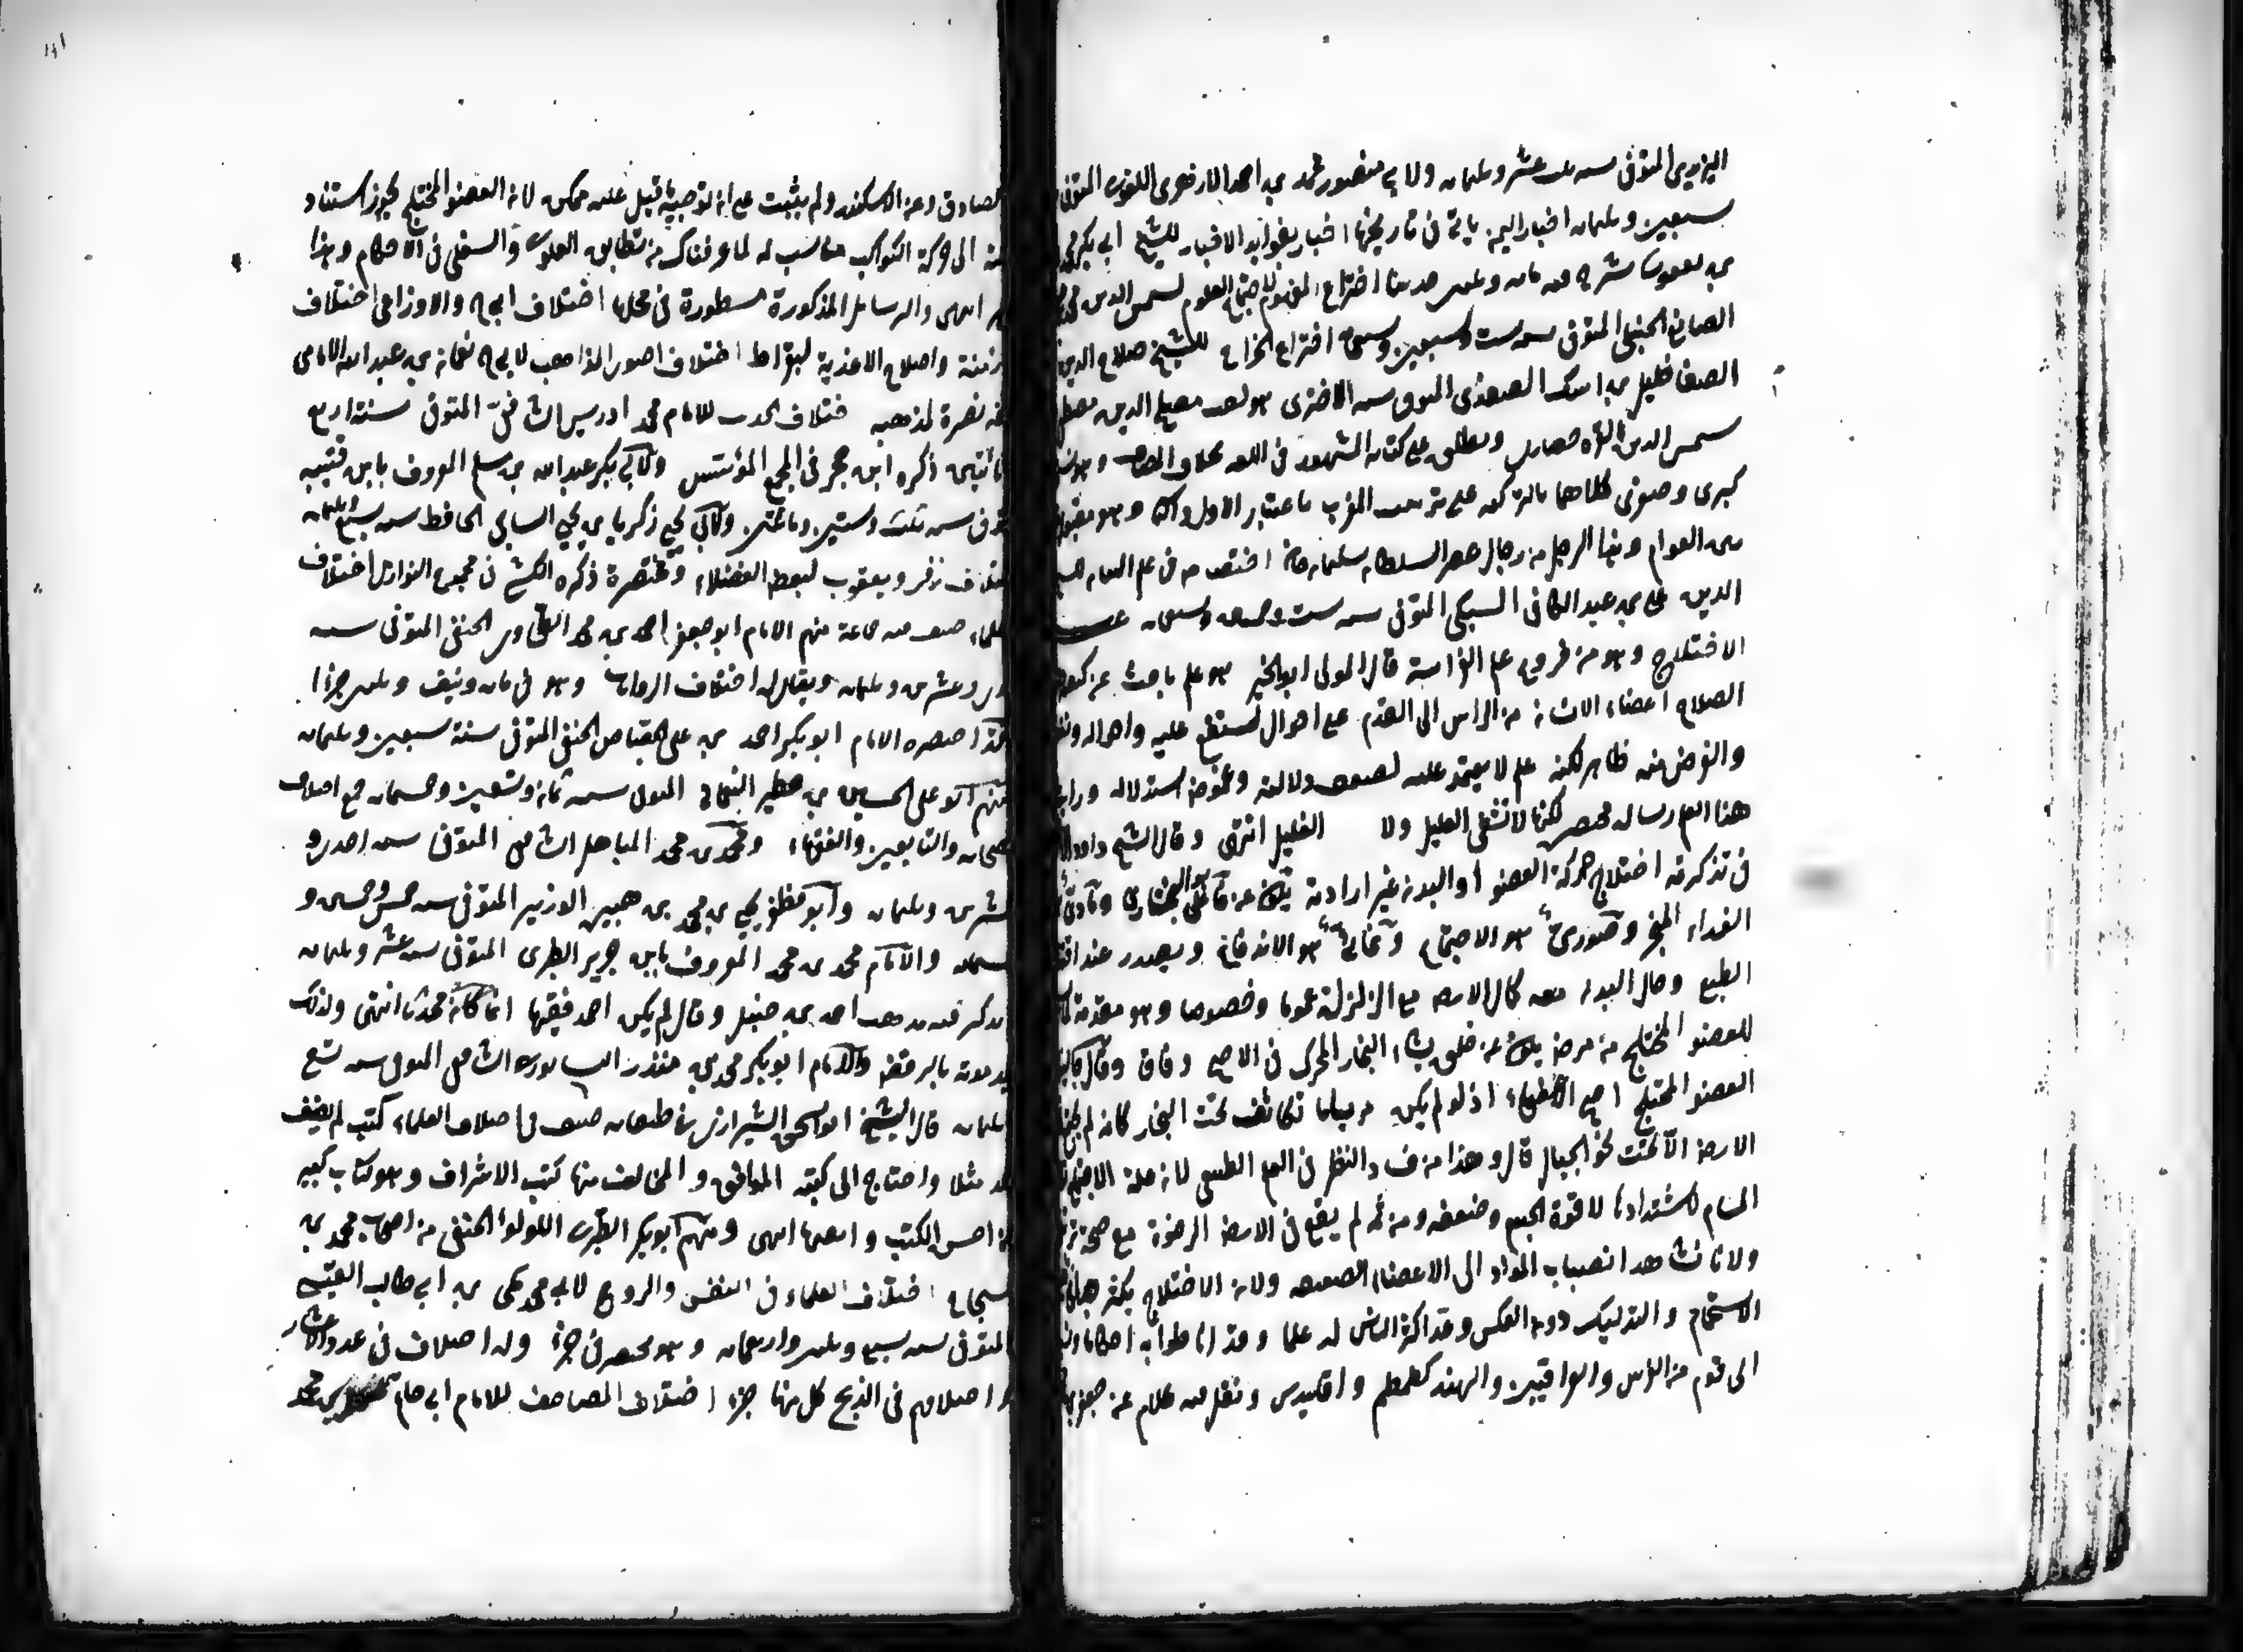 اليزيدى المتوفى سنه ثلث عشر وثلثمائه ولابى منصور محمد بن احمد الازهرى اللغوى المتوفى
سبعين وثلثمائه اخبار اليمن ياتى فى تاريخها اخبار بفوايد الاخبار للشيخ ابى بكر محمد
بن يعقوب شرح فيه مائه وثلثين حديثا اختراع المفهوم لاجتماع العلوم لشمس الدين محمد
الصايغ الحنفى المتوفى سنه ست وسبعين وسبعمائه اختراع الخراع للشيخ صلاح الدين
الصفا خليل بن ايبك الصفدى المتوفى سنه الاخترى هو لقب مصلح الدين مصطفى
شمس الدين القره حصارى ويطلق على كتابه المشهور فى اللغه
كبرى وصغرى كلاهما بالتركيه على ترتيب المغرب باعتبار الاول والثانى وهو مقبول
بين العوام وهذا الرجل من رجال عصر السلطان سليمان خان اختصاص فى علم البيان للشيخ
الدين على بن عبد الكافى السبكى المتوفى سنه ست وخمسين وسبعمائه علم
الاختلاج وهو من فروع علم الفراسة قال المولى ابو الخير هو علم باحث عن كيفية
اختلاج اعضاء الانسان من الراس الى القدم على احوال تستقع عليه واحواله ونفعه
والغرض منه ظاهر لكنه علم لا يعتمد عليه لضعف دلالته وغموض استدلاله ورايت
هذا العلم رسائل مختصر لكنها لا تشفى العليل ولا الغليل انتهى وقال الشيخ داود
فى تذكرته اختلاج حركة العضو او البدن غير ارادية تكون عن فاعلى هو البخار ومادى
الغداء المبخر وصورى هو الاجتماع وغائى هو الاندفاع ويصدر عند اقتدار
الطبع وحال البدن معه كحال الارض مع الزلزلة عموما وخصوصا وهو مقدمة لما
للعضو المختلج من مرض يكون عن خلط يشابه البخار المحرك فى الاصح وفاق وقال جالينوس
العضو المختلج اصح الاعضاء اذ لو لم يكن قويا ما تكاثف تحت البخار كانه لم يجتمع
الارض الا تحت نحو الجبال قال وهذا من فساد النظر فى العلم الطبيعى لان علة الاجتماع
المسام لاشتدادها لا قوة الجسم وضعفه ومن ثم لم يقع فى الارض الرخوة مع صحة
ولانا نشاهد انصباب المواد الى الاعضاء الضعيفه ولان الاختلاج يكثر جدا
الاستحمام والتدليك دون العكس وقد اكثر الناس له علما وقد اناطوا به احكاما ونسب
الى قوم من الفرس والعراقيين والهند كطمطم واقليدس ونقل فيه كلام عن جعفر بن
الصادق وعن الاسكندر ولم يثبت على ان توجيه ما قيل عليه ممكن لان العضو المختلج يجوز استناد
منه الى حركة الكوكب مناسب له لما عرفناك من تطابق العلوى والسفلى فى الاحكام وهذا
انتهى والرسائل المذكورة مسطورة فى محلها اختلاف ابى ح والاوزاعى اختلاف
الازمنة واصلاح الاغذية لبقراط اختلاف اصول المذاهب لابى ح نعمان بن عبد الله الامامى
نصرة لمذهبه اختلاف الحديث للامام محمد ادريس الشافعى المتوفى سنة اربع
ومائتين ذكره ابن حجر فى المجمع المؤسس ولابى بكر عبد الله بن مسلم المعروف بابن قتيبه
المتوفى سنه ثلث وستين ومائتين ولابى يحيى زكريا بن يحيى الساجى الحافظ سنه سبع وثلثمائه
اختلاف زفر ويعقوب لبعض الفضلاء ومختصرة ذكره الكشى فى مجموع النوازل اختلاف
العلماء صنف فيه جماعة منهم الامام ابو جعفر احمد بن محمد الطحاوى الحنفى المتوفى سنه
احدى وعشرين وثلثمائه ويقال له اختلاف الروايات وهو فى مائه ونيف وثلثين جزءا
وقد اختصره الامام ابو بكر احمد بن على الجصاص الحنفى المتوفى سنة سبعين وثلثمائه
ومنهم ابو على الحسين بن خطير النعمانى المتوفى سنه ثمان وتسعين وخمسمائه جمع اختلاف
الصحابه والتابعين والفقهاء ومحمد بن محمد الباهلى الشافعى المتوفى سنه احدى و
عشرين وثلثمائه وابو مظفر يحيى بن محمد بن هبير الوزير المتوفى سنه خمس وخمسين و
خمسمائه والامام محمد بن محمد المعروف بابن جرير الطبرى المتوفى سنه عشر وثلثمائه
لم يذكر فيه مذهب احمد بن حنبل وقال لم يكن احمد فقيها انما كان محدثا انتهى ولذلك
بعد موته بالرفضة والامام ابو بكر محمد بن منذر النيسابورى الشافعى المتوفى سنه تسع
وثلثمائه قال الشيخ ابو اسحق الشيرازى فى طبقاته صنف فى اختلاف العلماء كتب لم يصنف
احد مثلها واحتاج الى كتبه الموافق والمخالف منها كتب الاشراف وهو كتاب كبير
من احسن الكتب وانفعها انتهى ومنهم ابو بكر الطبرى اللؤلؤا الحنفى من اصحاب محمد بن
شجاع اختلاف العلماء فى النفس والروح لابى محمد مكى بن ابى طالب القيسى
المتوفى سنه سبع وثلثين واربعمائه وهو مختصر فى جزء وله اختلاف فى عدد الاعشار
واختلافهم فى الذبيح كل منها جزء اختلاف المصاحف للامام ابى حاتم سهل بن محمد